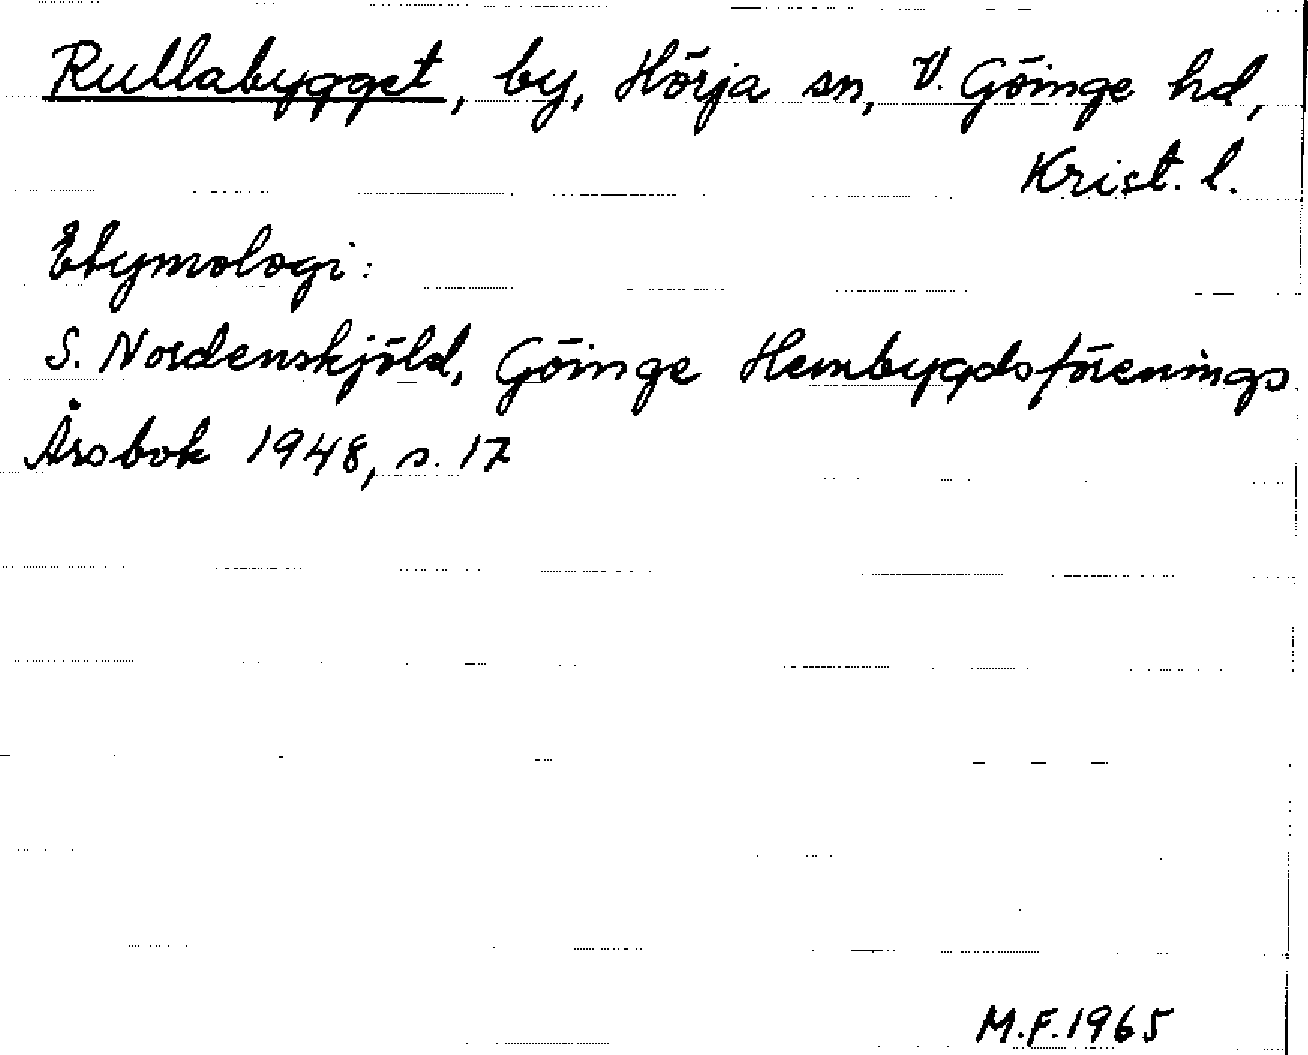 Rullabygget, by, Hörja sn, V. Göinge hd,
Krist. l.
Etymologi:
S. Nordenskjöld, Göinge Hembygdsförenings
Årsbok 1948, s. 17
M.F.1965